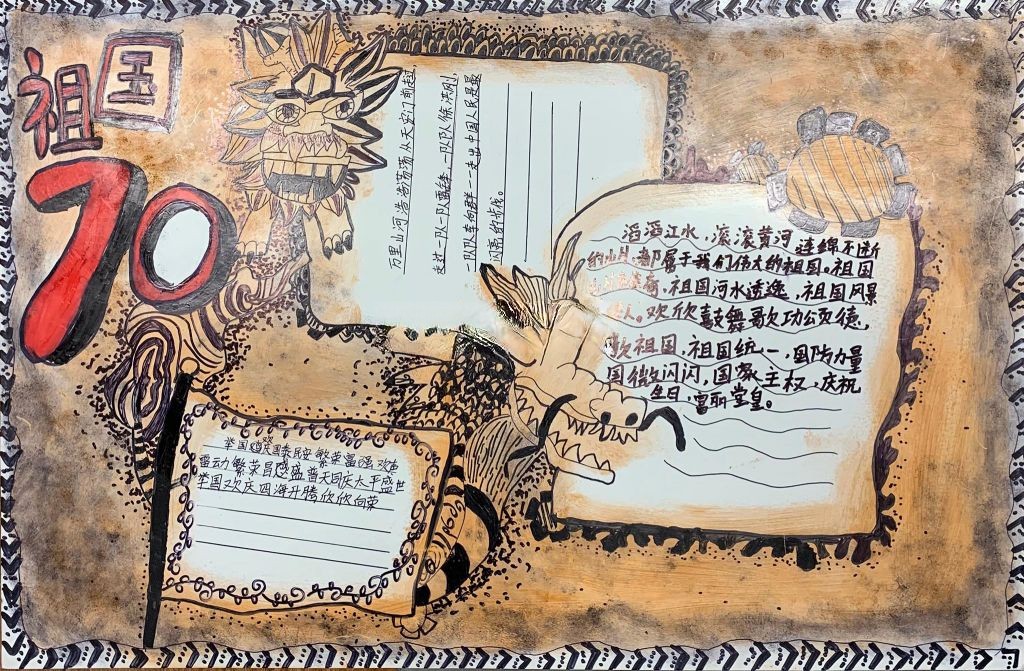 祖国
70
万里山河浩浩荡荡从天安门前起,
走过一队一队雷锋,一队队徐洪刚,
一队队李向群---走出中国人民是最
闪亮的步伐。
滔滔江水,滚滚黄河连绵不断
的山月,都属于我们伟大的祖国。祖国
祖国河水透逸,祖国风景
人。欢欣鼓舞歌功公页德,
歌祖国,祖国统一,国防力量
国徽闪闪,国家主权,庆祝
生日,富丽堂皇。
举国欢庆国泰民安繁荣富强欢声
雷动繁荣昌盛普天同庆太平盛世
举国欢庆四海升腾欣欣向荣